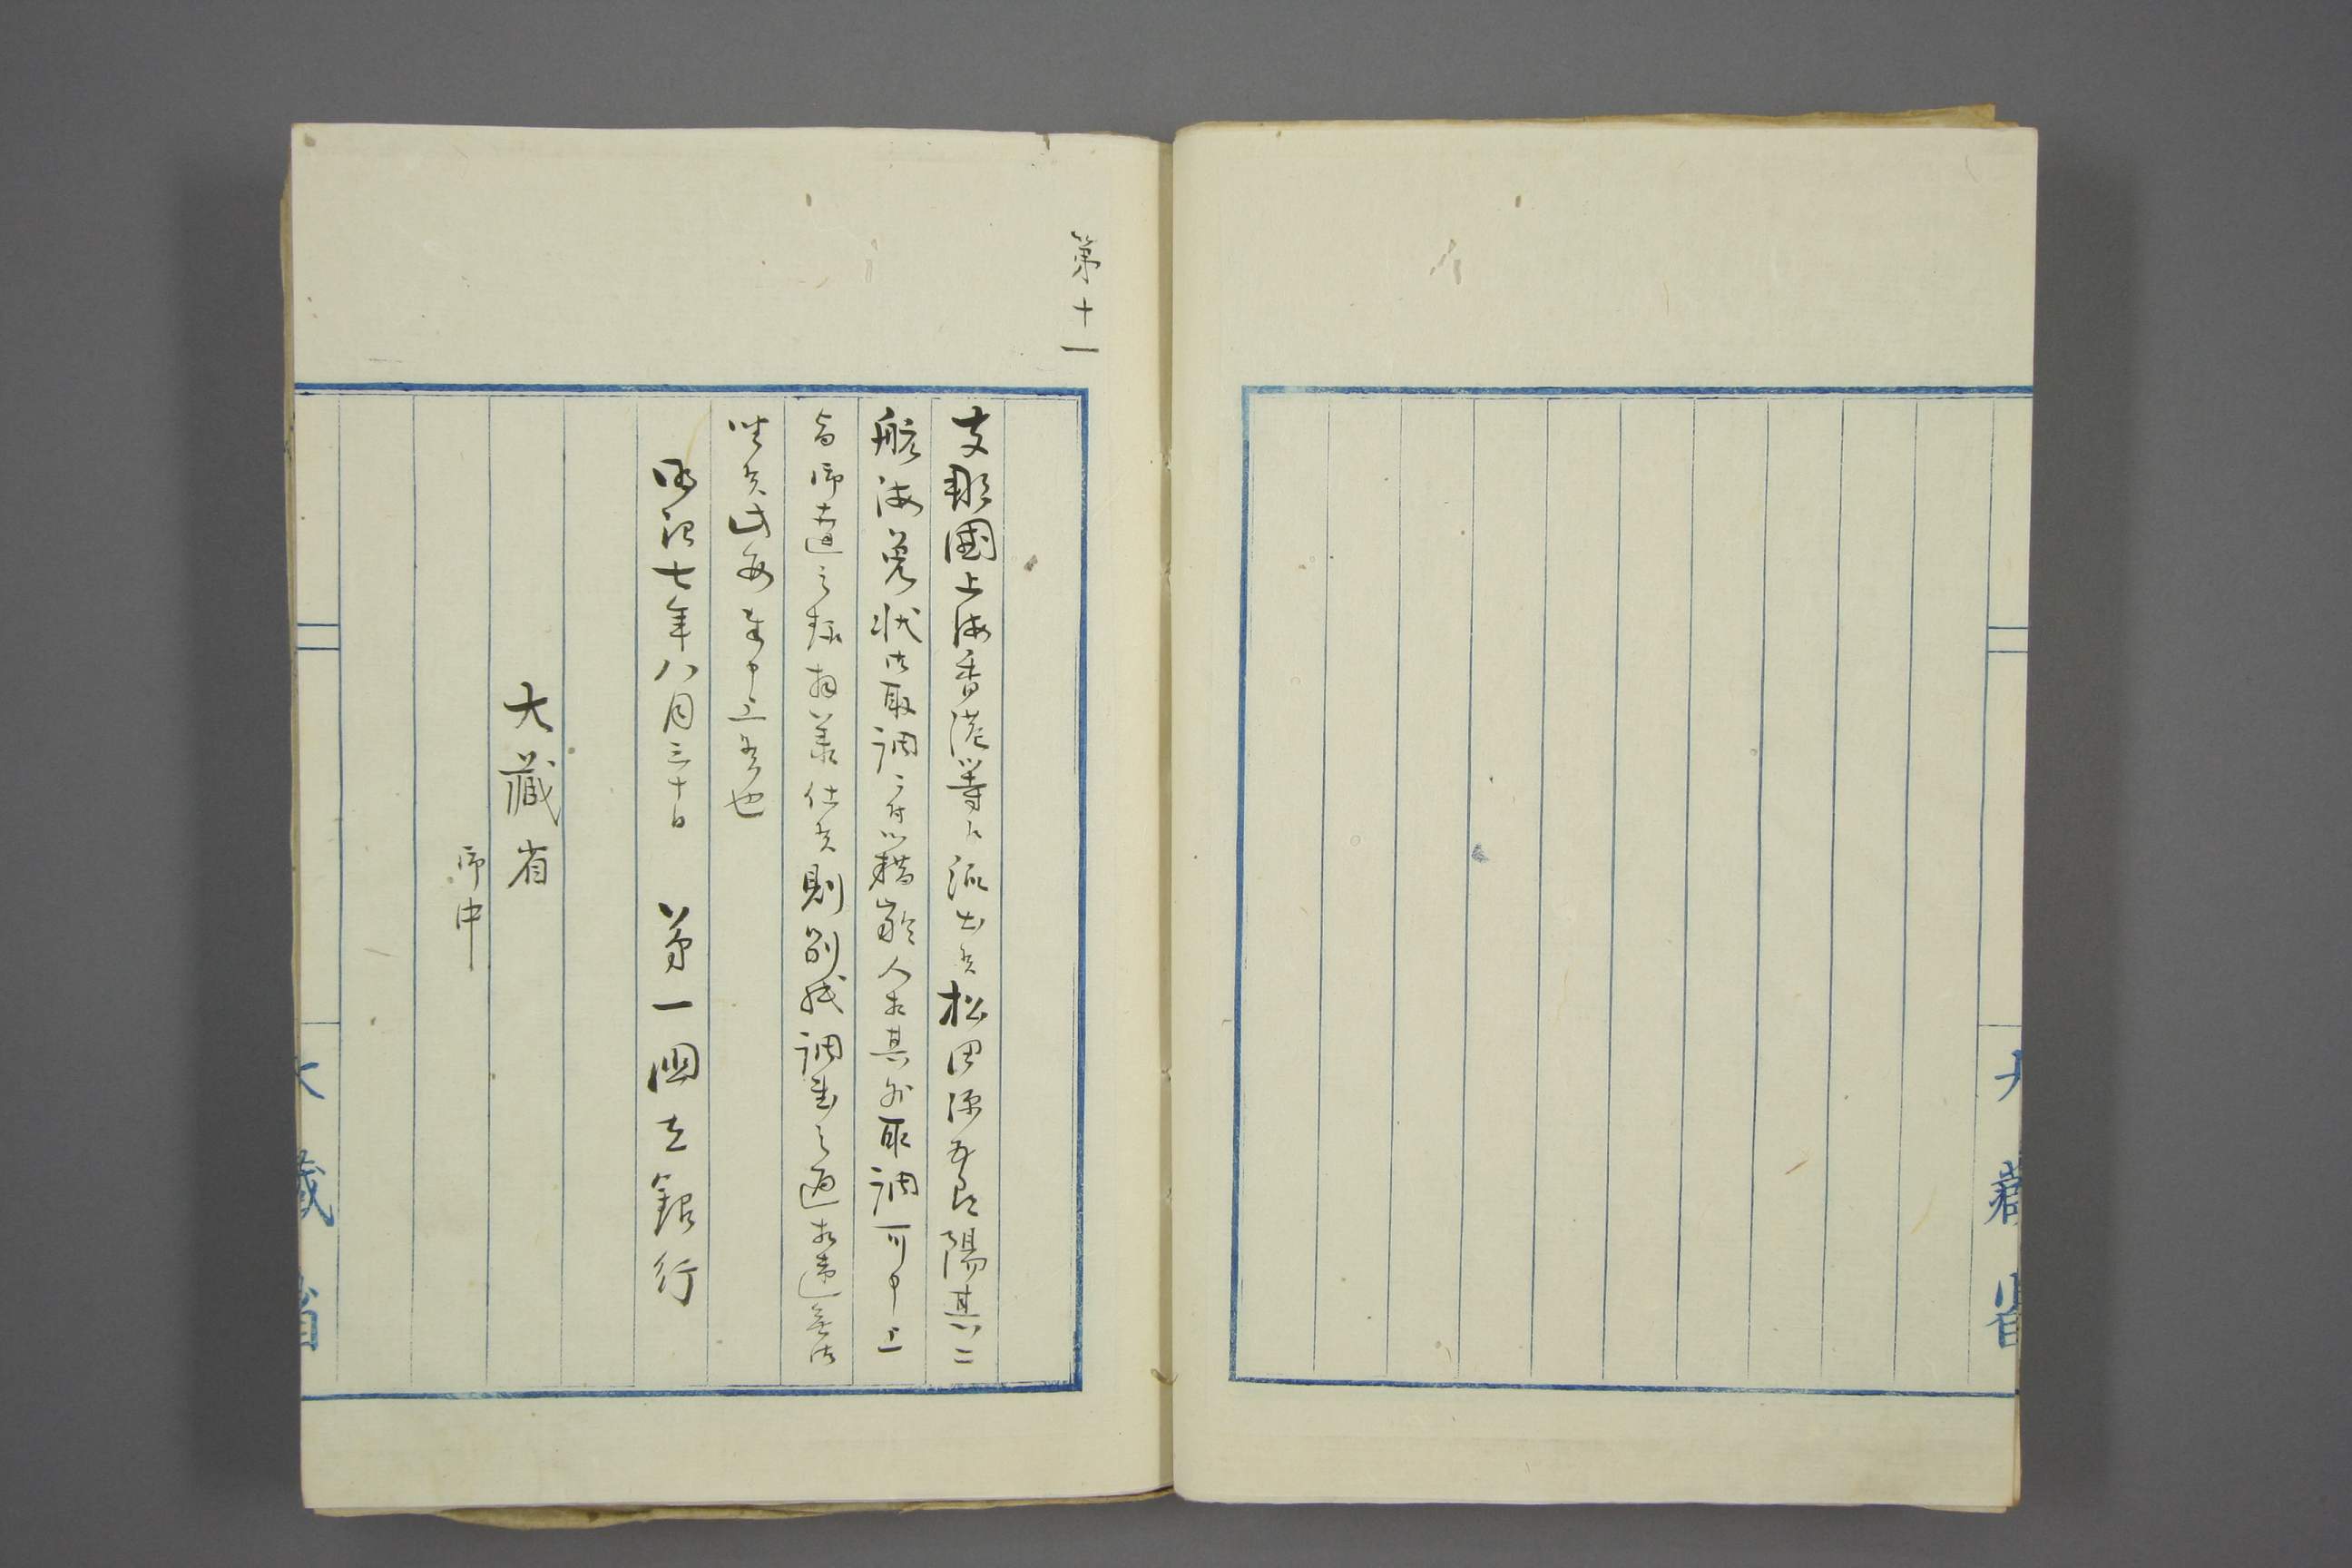 大藏省
第十一
支那國上海香港等ヘ派出候松田源五郎陽其二
航海免状御取調ニ付籍齢人相其外取調可申上
旨御達之趣拝承仕候則別紙調書之通相違無御
坐候此段奉申上候也
明治七年八月三十日 第一國立銀行
大藏省
御中
大藏省